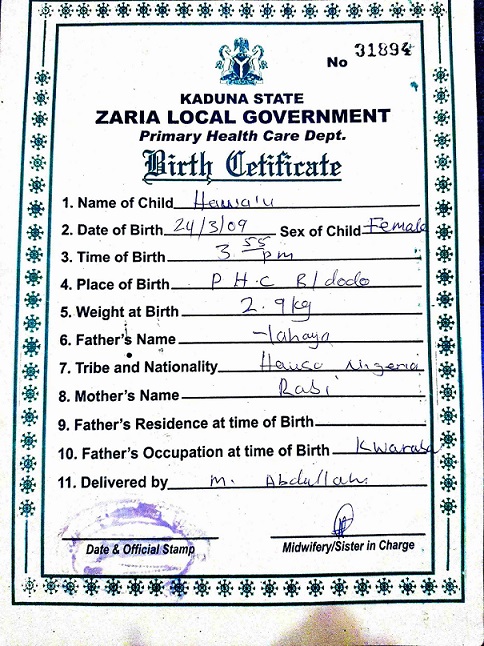 No 31894
KADUNA STATE
ZARIA LOCAL GOVERNMENT
Primary Health Care Dept.
Birth Cetificate
1. Name of Child Hawa'u
2. Date of Birth 24/3/09 Sex of Child Female
3. Time of Birth 3 55 pm
4. Place of Birth P H C B/dodo
5. Weight at Birth 2.9kg
6. Father's Name Yahaya
7. Tribe and Nationality Hausa Nigeria
8. Mother's Name Rabi
9. Father's Residence at time of Birth
10. Father's Occupation at time of Birth
11. Delivered by M. Abdullahi
Date & Official Stamp
Midwifery/Sister in Charge